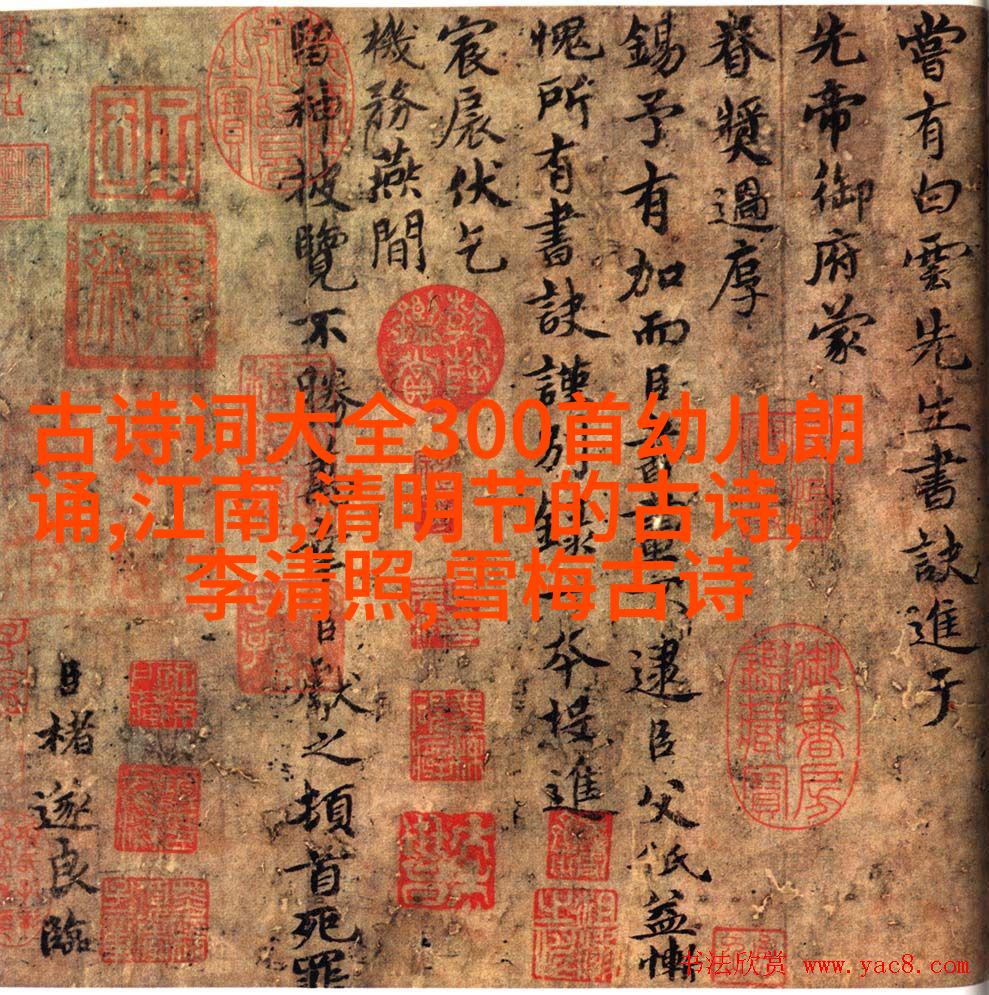 嘗有白雲先生書訣進于
先帝御府蒙
眷奬過厚
錫予有加而臣不逮臣父祇益慚
愧所有書訣謹別錄一本投進
宸扆伏乞
機務燕間
留神披覽不勝臣獻之頓首死罪
臣褚遂良臨
古诗词大全300首幼儿朗
诵,江南,清明节的古诗,
李清照,雪梅古诗
书法欣赏 www.yac8.com